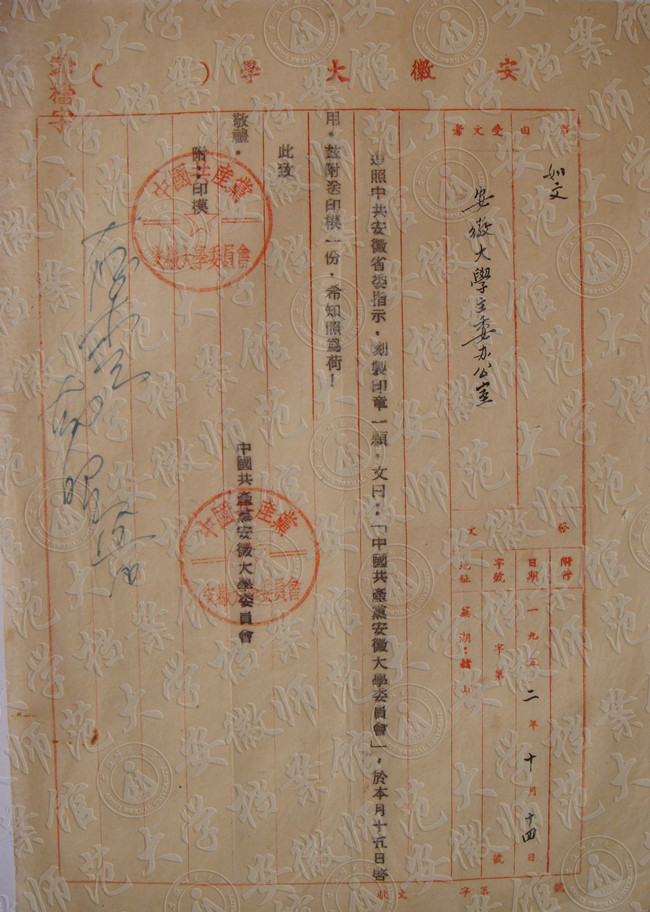 安徽大學（　　）
事由
如文
受文者
安徽大學主委办公室
附件
發文
日期 一九五二年十月十四日
字號 字第 號
地址 蕪湖：赭山
遵照中共安徽省委指示，刻製印章一顆，文曰：「中國共產黨安徽大學委員會」，於本月十五日啓
用。玆附卷印模一份，希知照爲荷！
此致
敬禮。
中國共產黨安徽大學委員會
附：印模
中國共產黨
安徽大學委員會
中國共產黨
安徽大學委員會
收文 字第 號
安徽师范大学档案馆